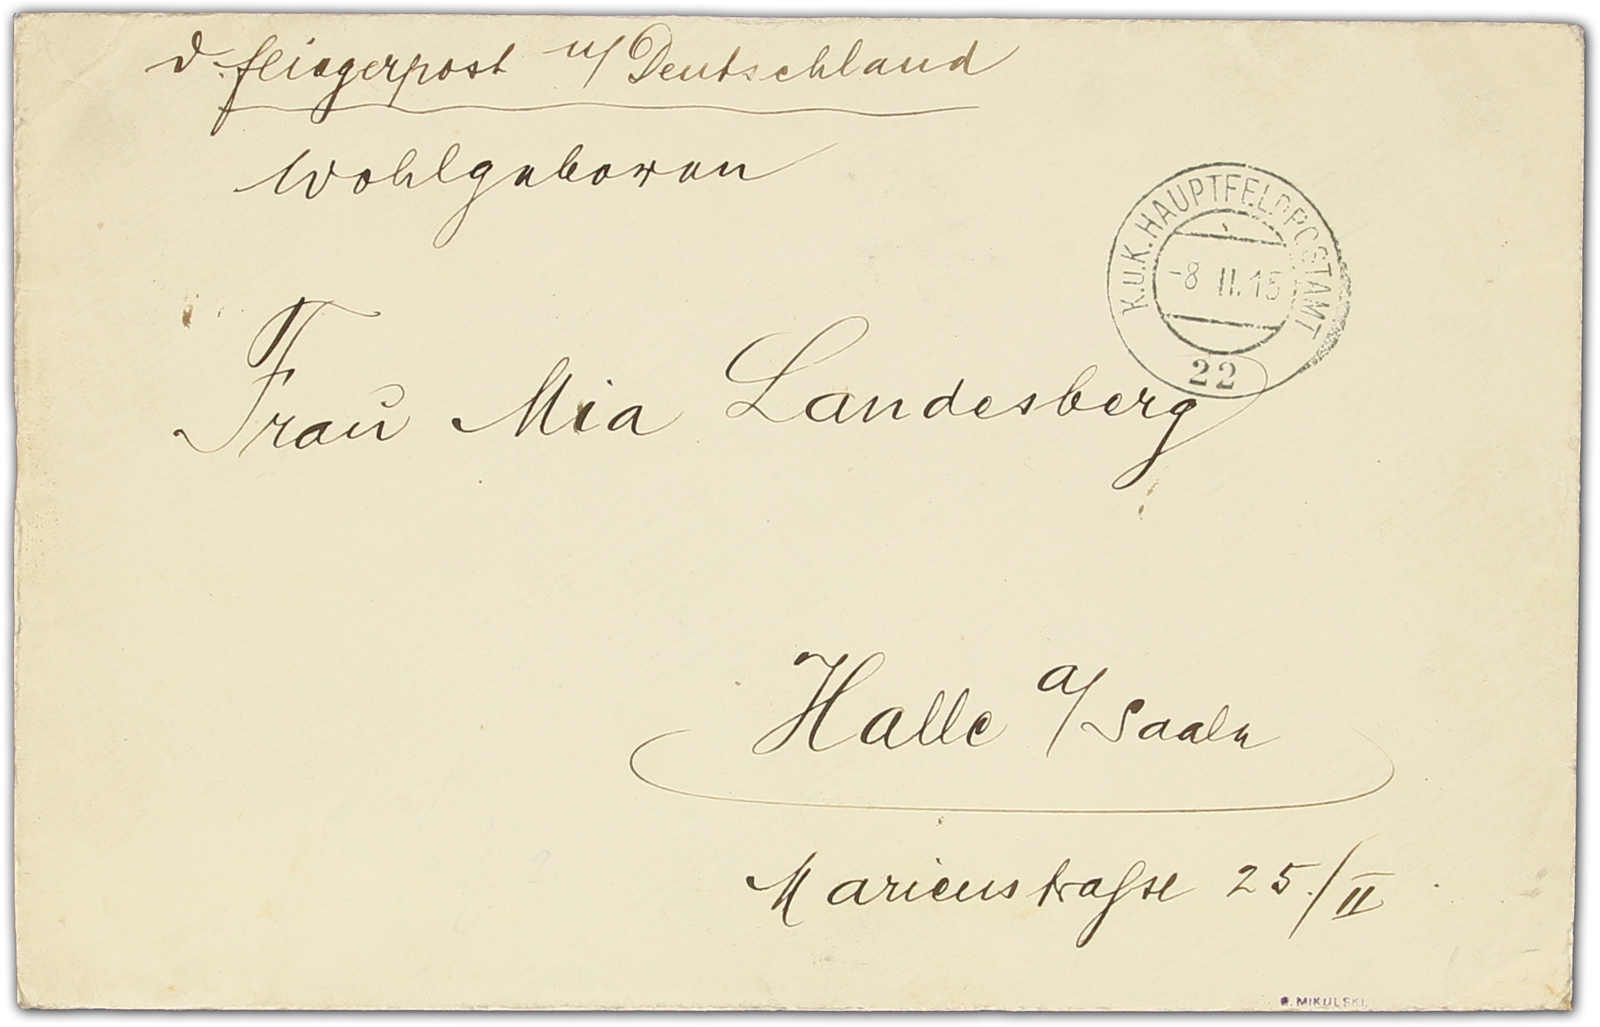 d. Fliegerpost n/ Deutschland
Wohlgeboren
K.U.K. HAUPTFELDPOSTAMT
-8 II.15
22
Frau Mia Landesberg
Halle a/Saale
Marienstrasse 25/II
MIKULSKI